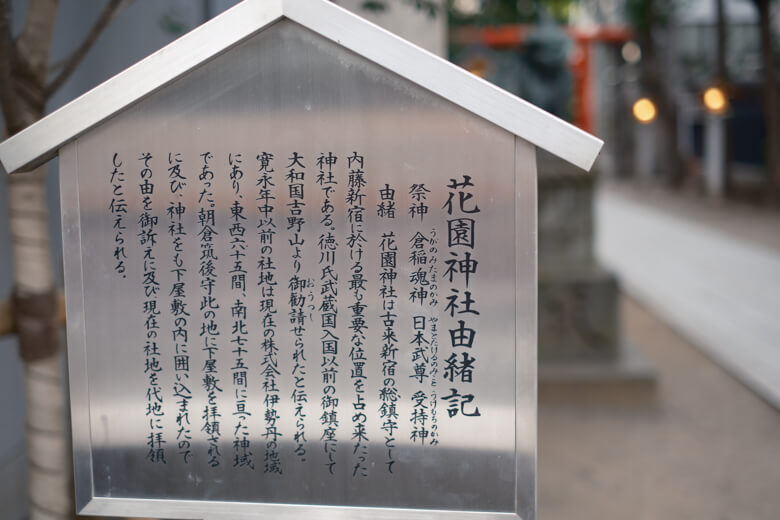 花園神社由緒記
祭神　倉稲魂神　日本武尊　受持神
うがのみたまのかみ　やまとたけるのみこと　うけもちのかみ
由緒　花園神社は古来新宿の総鎮守として
内藤新宿に於ける最も重要な位置を占め来たった
神社である。徳川氏武蔵国入国以前の御鎮座にして
大和国吉野山より御勧請せられたと伝えられる。
おうつし
寛永年中以前の社地は現在の株式会社伊勢丹の地域
にあり、東西六十五間、南北七十五間に亘った神域
であった。朝倉筑後守此の地に下屋敷を拝領される
に及び、神社をも下屋敷の内に囲い込まれたので
その由を御訴えに及び現在の社地を代地に拝領
したと伝えられる。